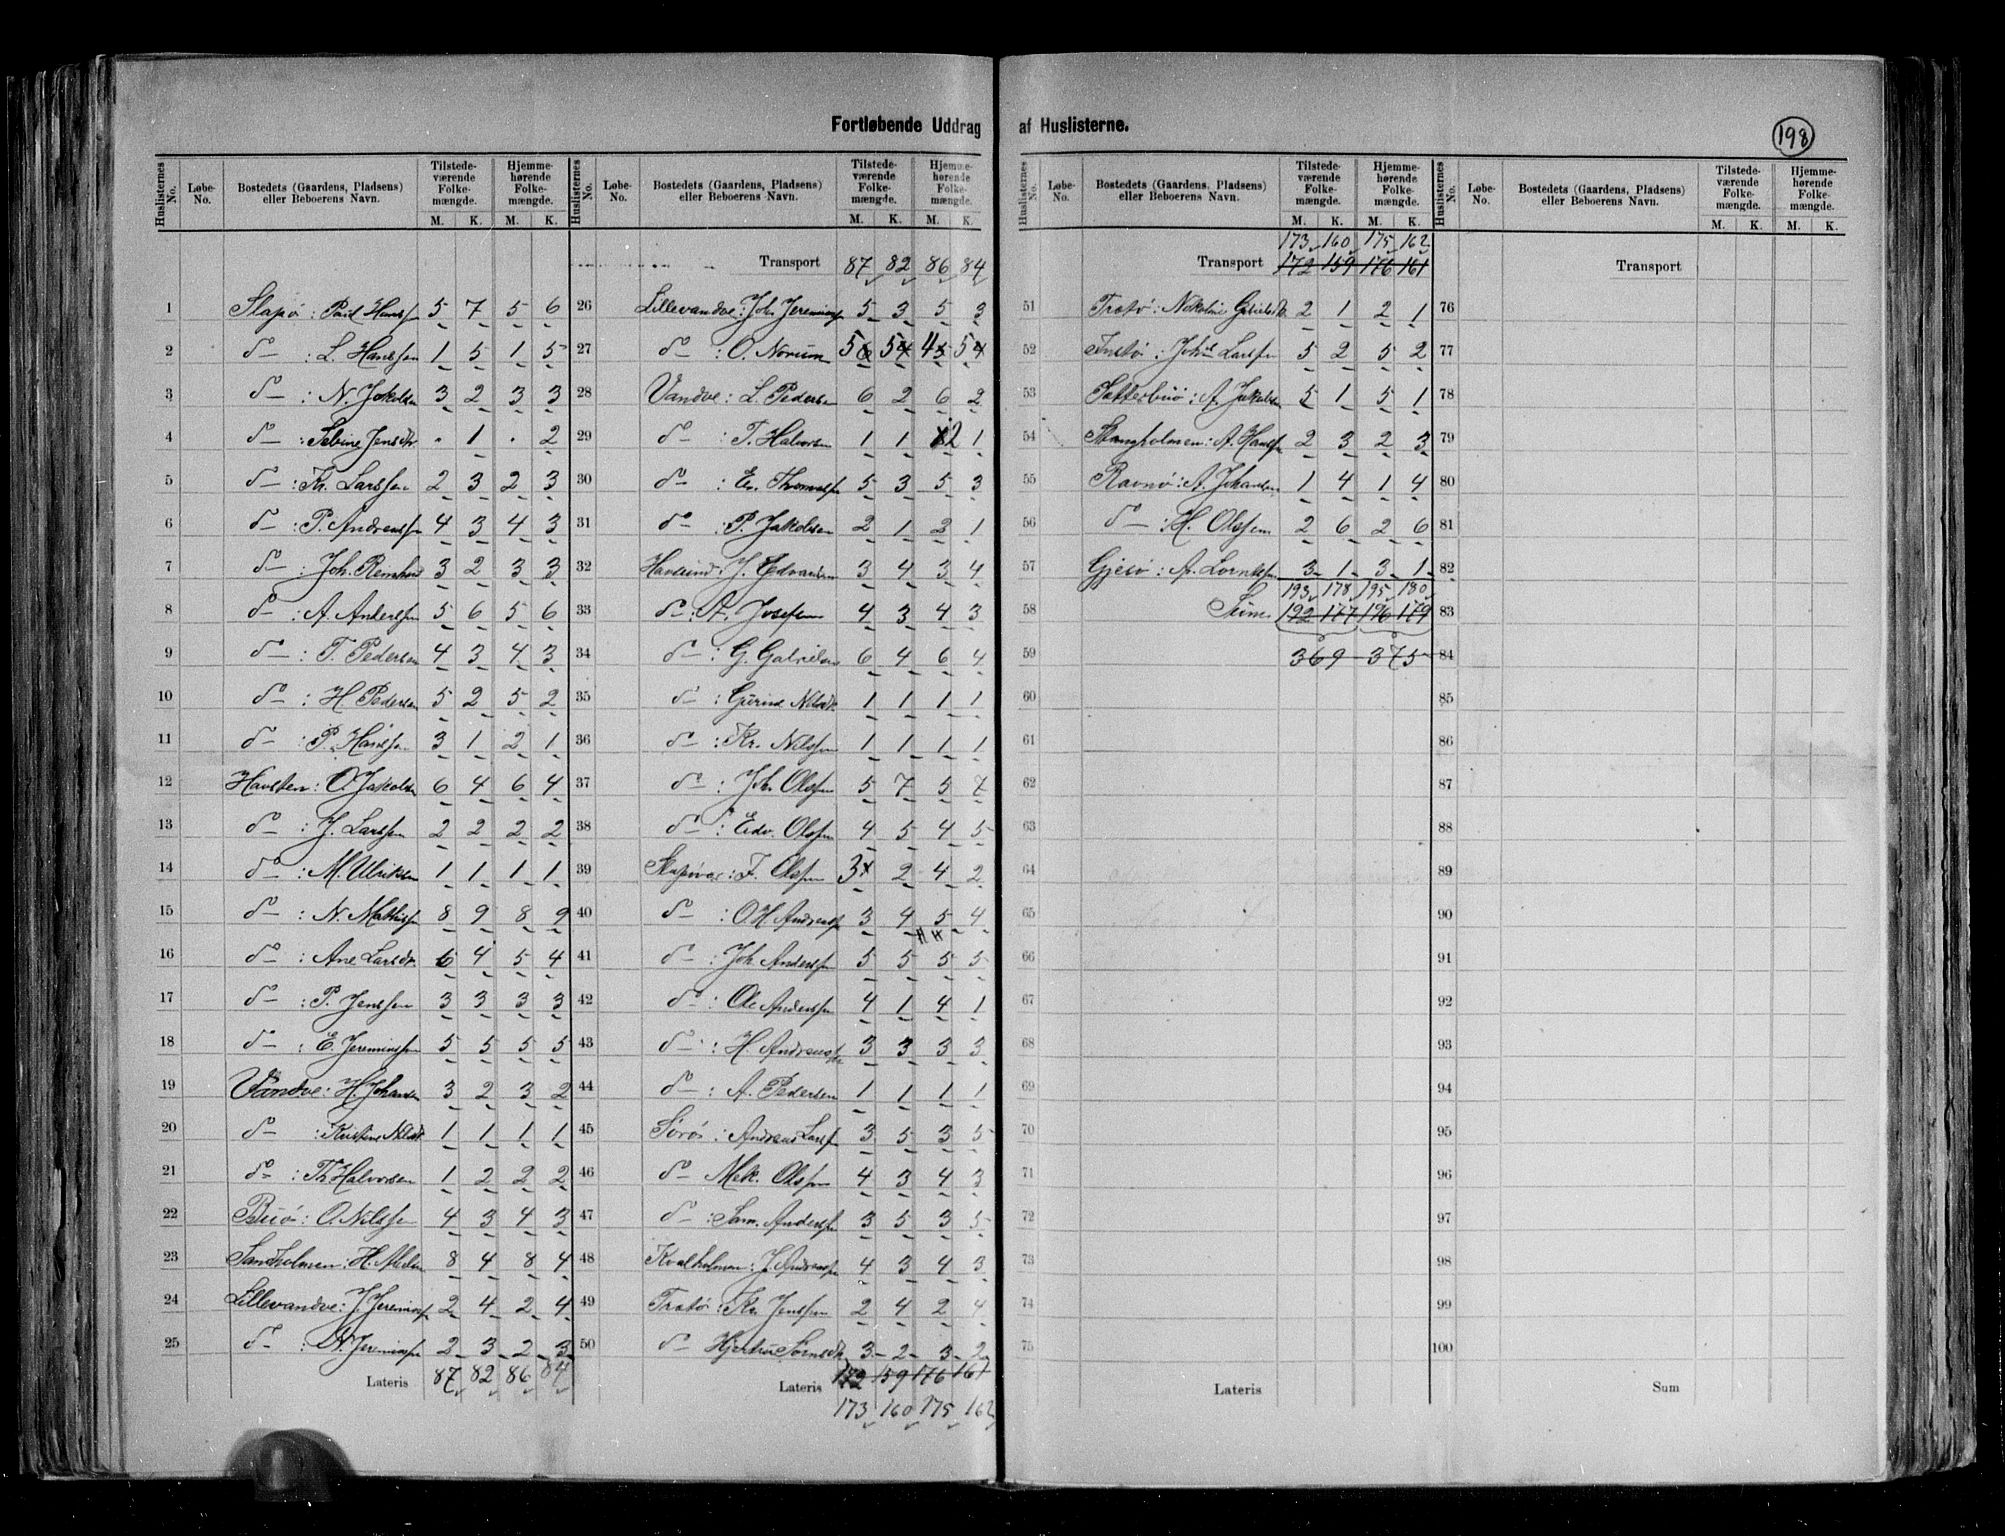 Fortløbende Uddrag af Huslisterne.
198
Huslisternes No. Løbe-No. Bostedets (Gaardens, Pladsens) eller Beboerens Navn. Tilstedeværende Folkemængde. M. K. Hjemmehørende Folkemængde. M. K.
1 Slapø : Paul Hanssen 5 7 5 6
2 do : L. Hanssen 1 5 1 5
3 do : N. Jakobsen 3 2 3 3
4 do : Sebine Jensdtr . 1 . 2
5 do : Kr. Larssen 2 3 2 3
6 do : P. Andreassen 4 3 4 3
7 do : Joh. Reinhard 3 2 3 3
8 do : A. Anderssen 5 6 5 6
9 do : T. Pedersen 4 3 4 3
10 do : H. Pedersen 5 2 5 2
11 do : P. Hanssen 3 1 2 1
12 Havsten : O. Jakobsen 6 4 6 4
13 do : J. Larssen 2 2 2 2
14 do : M. Ulriksen 1 1 1 1
15 do : N. Mathissen 8 9 8 9
16 do : Ane Larsdtr. 6 4 5 4
17 do : P. Jenssen 3 3 3 3
18 do : E. Jeremiassen 5 5 5 5
19 Vandve : H. Johansen 3 2 3 2
20 do : Kristine Nilsdtr 1 1 1 1
21 do : Th Halvorsen 1 2 2 2
22 Buø : O. Nilssen 4 3 4 3
23 Sandholmen : H. 8 4 8 4
24 Lillevandve : J. Jeremiassen 2 4 2 4
25 do : Jeremiassen 2 3 2 3
Lateris 87 82 86 84
Transport 87 82 86 84
26 Lillevandve : Joh. Jeremiassen 5 3 5 3
27 do : O. Norum 5 5 4 5
28 Vandve : L. Pedersen 6 2 6 2
29 do : T. Halvorsen 1 1 2 1
30 do : Er. Thomassen 5 3 5 3
31 do : P. Jakobsen 2 1 2 1
32 Havsund : J. Edvardsen 3 4 3 4
33 do : A. Josefsen 4 3 4 3
34 do : G. Gabrielsen 6 4 6 4
35 do : Gurine Nilsdtr. 1 1 1 1
36 do : Kr. Nilssen 1 1 1 1
37 do : Joh. Olssen 5 7 5 7
38 do : Edv. Olssen 4 5 4 5
39 Slapøvær : F. Olssen 3 2 4 2
40 do : O H Andreassen 3 4 5 4
41 do : Joh Anderssen 5 5 5 5
42 do : Ole Anderssen 4 1 4 1
43 do : H. Andreassen 3 3 3 3
44 do : A. Pedersen 1 1 1 1
45 Sørø : Andreas Larssen 3 5 3 5
46 do Mek. Olssen 4 3 4 3
47 do : Sam. Anderssen 3 5 3 5
48 Kvalholmen : J. Andreassen 4 3 4 3
49 Trotø : Kr. Jenssen 2 4 2 4
50 do Sørnsdtr 3 2 3 2
Lateris 172 159 176 161
173 160 175 162
173 160 175 162
Transport 172 159 176 161
51 Trotø : Nikoline Gabrielsdtr 2 1 2 1
52 Instø : Johs Larssen 5 2 5 2
53 Sætterbuø : A. Jakobsen 5 1 5 1
54 Stangholmen : A. Hanssen 2 3 2 3
55 Ravnø : A. Johansen 1 4 1 4
56 do : H. Olssen 2 6 2 6
57 Gjesø : A. 3 1 3 1
193 178 195 180
58 Sum 192 177 196 179
59 369 375
60
61
62
63
64
65
66
67
68
69
70
71
72
73
74
75
Lateris
Transport
76
77
78
79
80
81
82
83
84
85
86
87
88
89
90
91
92
93
94
95
96
97
98
99
100
Sum